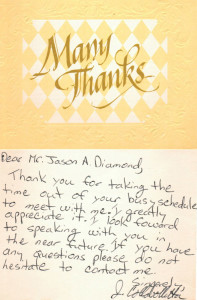 Many
Thanks
Dear Mr. Jason A Diamond,
Thank you for taking the
time out of your busy schedule
to meet with me. I greatly
appreciate it. I look foward
to speaking with you in
the near future. If you have
any questions please do not
hesitate to contact me.